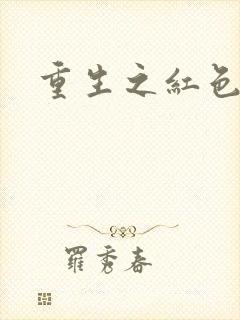 重生之紅色
羅秀春